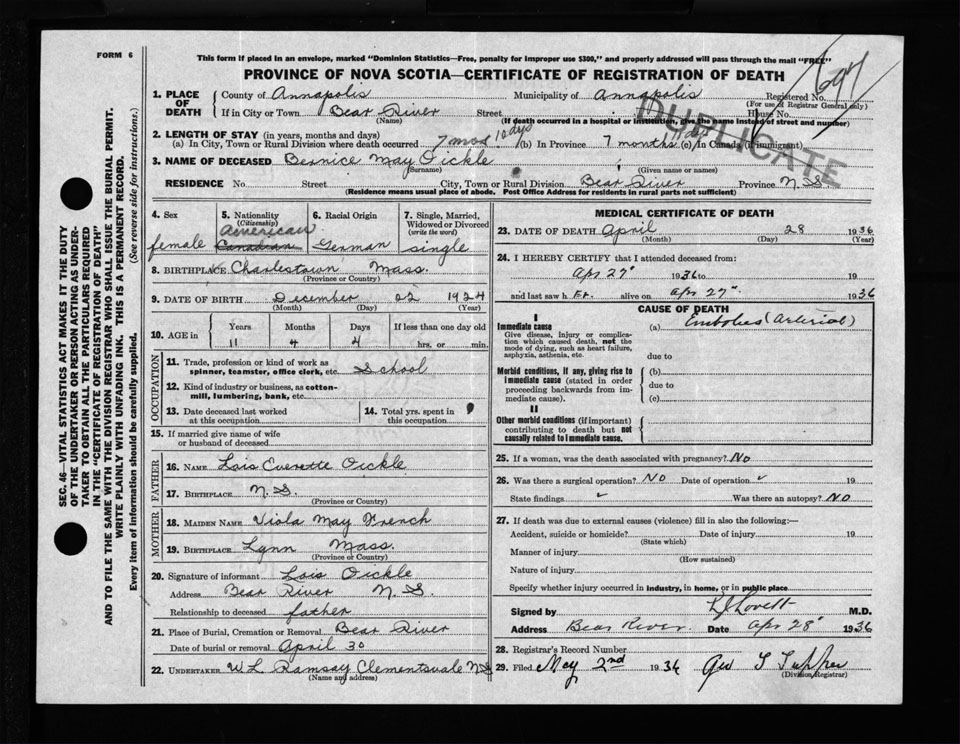 FORM 6
This form if placed in an envelope, marked "Dominion Statistics—Free, penalty for improper use $300," and properly addressed will pass through the mail "FREE"
PROVINCE OF NOVA SCOTIA—CERTIFICATE OF REGISTRATION OF DEATH
DUPLICATE
SEC. 46—VITAL STATISTICS ACT MAKES IT THE DUTY
OF THE UNDERTAKER OR PERSON ACTING AS UNDER-
TAKER TO OBTAIN ALL THE PARTICULARS REQUIRED
IN THE "CERTIFICATE OF REGISTRATION OF DEATH"
AND TO FILE THE SAME WITH THE DIVISION REGISTRAR WHO SHALL ISSUE THE BURIAL PERMIT.
WRITE PLAINLY WITH UNFADING INK. THIS IS A PERMANENT RECORD.
Every item of information should be carefully supplied. (See reverse side for instructions.)
1. PLACE OF DEATH
County of Annapolis Municipality of Annapolis Registered No.
(For use of Registrar General only)
If in City or Town Bear River Street House No.
(Name) (If death occurred in a hospital or institution, give the name instead of street and number)
2. LENGTH OF STAY (in years, months and days)
(a) In City, Town or Rural Division where death occurred 7 mos. 10 dys (b) In Province 7 months (c) In Canada (if immigrant)
3. NAME OF DECEASED Bernice May Oickle
(Surname) (Given name or names)
RESIDENCE No. Street City, Town or Rural Division Bear River Province N.S.
(Residence means usual place of abode. Post Office Address for residents in rural parts not sufficient)
4. Sex
female
5. Nationality
(Citizenship)
American
Canadian
6. Racial Origin
German
7. Single, Married,
Widowed or Divorced
(write the word)
single
8. BIRTHPLACE Charlestown Mass.
(Province or Country)
9. DATE OF BIRTH December 22 1924
(Month) (Day) (Year)
10. AGE in
Years Months Days If less than one day old
11 4 4 hrs. or min.
OCCUPATION
11. Trade, profession or kind of work as
spinner, teamster, office clerk, etc. School
12. Kind of industry or business, as cotton-
mill, lumbering, bank, etc.
13. Date deceased last worked
at this occupation
14. Total yrs. spent in
this occupation
15. If married give name of wife
or husband of deceased
FATHER
16. NAME Lois Everette Oickle
17. BIRTHPLACE N.S.
(Province or Country)
MOTHER
18. MAIDEN NAME Viola May French
19. BIRTHPLACE Lynn Mass.
(Province or Country)
20. Signature of informant Lois Oickle
Address Bear River N.S.
Relationship to deceased father
21. Place of Burial, Cremation or Removal Bear River
Date of burial or removal April 30
22. UNDERTAKER W L Ramsay Clementsvale N S
(Name and address)
MEDICAL CERTIFICATE OF DEATH
23. DATE OF DEATH April 28 1936
(Month) (Day) (Year)
24. I HEREBY CERTIFY that I attended deceased from:
Apr 27 1936 to 19
and last saw h er. alive on Apr 27 1936
CAUSE OF DEATH
I
Immediate cause
Give disease, injury or complica-
tion which caused death, not the
mode of dying, such as heart failure,
asphyxia, asthenia, etc.
(a) Embolus (Arterial)
due to
Morbid conditions, if any, giving rise to
immediate cause (stated in order
proceeding backwards from im-
mediate cause).
(b)
due to
(c)
II
Other morbid conditions (if important)
contributing to death but not
causally related to immediate cause.
25. If a woman, was the death associated with pregnancy? No
26. Was there a surgical operation? No Date of operation 19
State findings Was there an autopsy? No
27. If death was due to external causes (violence) fill in also the following:—
Accident, suicide or homicide? Date of injury 19
(State which)
Manner of injury
(How sustained)
Nature of injury
Specify whether injury occurred in industry, in home, or in public place
Signed by Lovett M.D.
Address Bear River. Date Apr 28 1936
28. Registrar's Record Number
29. Filed May 2nd 1936 Geo T Tupper
(Division Registrar)